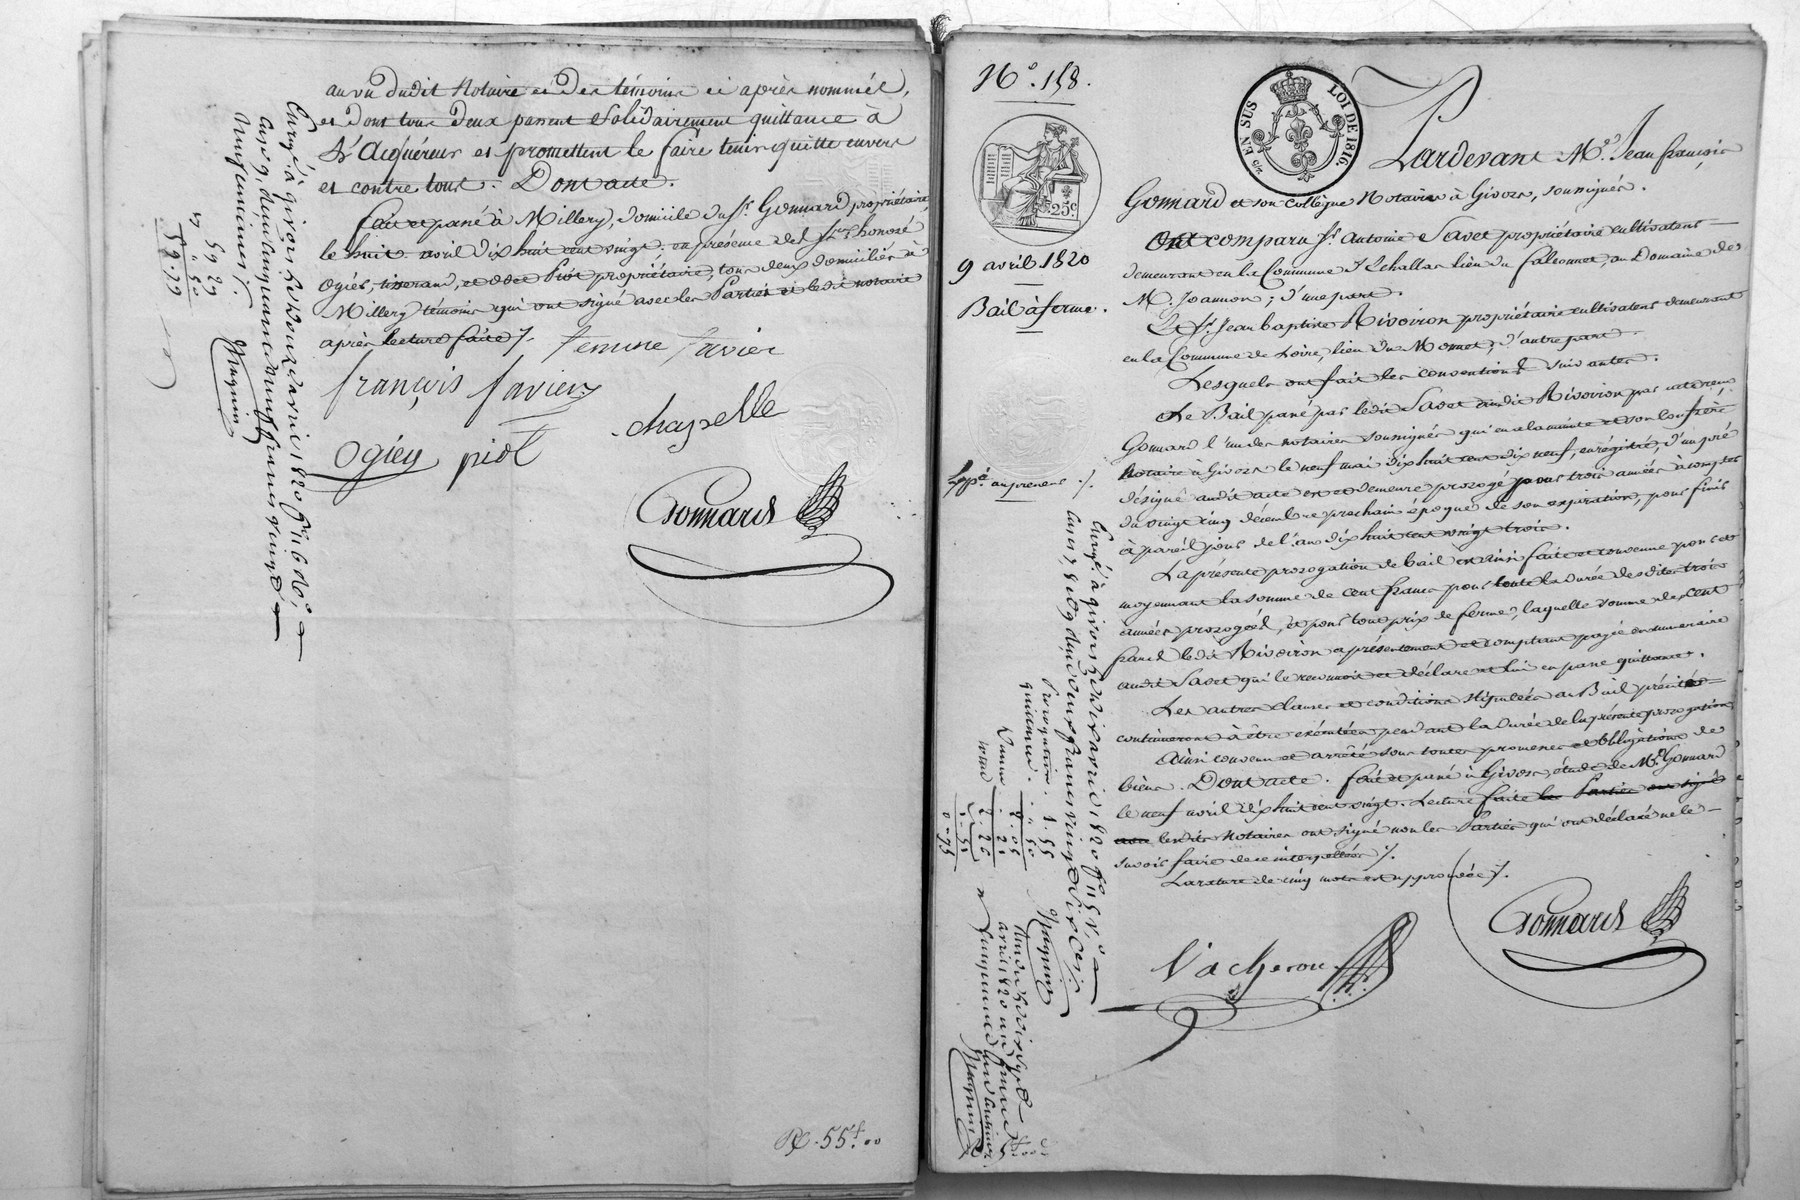 au vu dudit Notaire et des témoins ci après nommés,
et dont tous deux passent solidairement quittance à
l'Acquéreur et promettent le faire tenir quitte envers
et contre tous. Dont acte.
fait et passé à Millery, domicile du Sr. Gonnard propriétaire,
le huit avril dix huit cent vingt. en présence des Srs. honoré
Ogier, tisserand, et Piot propriétaire, tous deux domiciliés à
Millery témoins qui ont signé avec les Parties et ledit notaire
après lecture faite ./.
femme favier
françois favier
chapelle
Ogier piot
Gonnard
Enregé. à givors le douze avril 1820 fo. 116 Vo.
cases 9, reçu cinquante neuf francs vingt
cinq centimes.
55f.00
No. 158.
25c.
EN SUS
LOI DE 1816.
9 avril 1820
Bail à ferme.
Expé. au preneur ./.
Pardevant Me. Jean françois
Gonnard et son Collègue Notaires à Givors, soussignés.
Ont comparu Sr. Antoine Savet propriétaire cultivateur
demeurant en la Commune d'Echallas lieu du falconnet, au Domaine de
M. Joannon; d'une part.
Et Sr. Jean baptiste Rivoiron propriétaire cultivateur demeurant
en la Commune de Loire, lieu du Mornet; d'autre part.
Lesquels ont fait les conventions suivantes.
Le Bail passé par ledit Savet audit Rivoiron par acte reçu
Gonnard l'un des notaires soussignés qui en a la minute et son confrère
Notaire à Givors le neuf mai dix huit cent dix neuf, enregistré, d'un pré
désigné audit acte est et demeure prorogé pour trois années à compter
du vingt cinq décembre prochain époque de son expiration, pour finir
à pareil jour de l'an dix huit cent vingt trois.
La présente prorogation de bail est ainsi faite et convenue pour et
moyennant la somme de cent francs pour toute la durée desdites trois
années prorogées, et pour tout prix de ferme; laquelle somme de cent
francs ledit Rivoiron a présentement et comptant payée en numéraire
audit Savet qui le reconnoit et déclare et lui en passe quittance.
Les autres clauses et conditions stipulées au Bail précité
continueront à être exécutées pendant la durée de la présente prorogation
Ainsi convenu et arrêté sous toutes promesses et obligations de
biens. Dont acte. fait et passé à Givors, étude de Me. Gonnard
le neuf avril dix huit cent vingt. Lecture faite les Parties ont signé
avec lesdits Notaires ont signé non les Parties qui ont déclaré ne le
savoir faire de ce interpellées ./.
La rature de cinq mots est approuvée ./.
Vacheron
Gonnard
Enregé. à givors le dix avril 1820 fo. 115 Vo.
cases 7, 8 et 9 reçu deux francs vingt six ces.
Prorogation . 1.55
quittance . . " 50